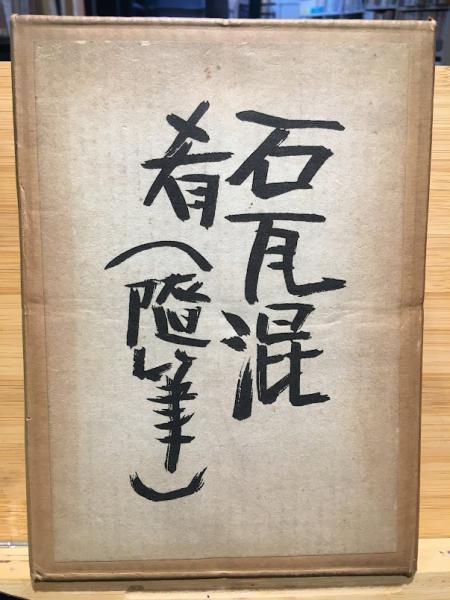 石瓦混
肴（随筆）